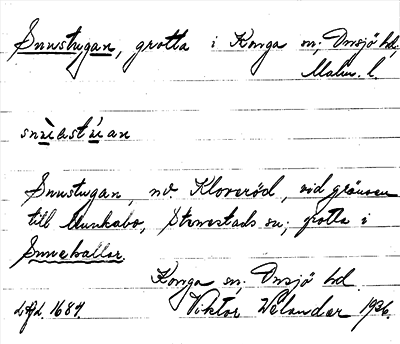 Snustugan, grotta i Konga sn; Onsjö hd,
Malm. l.
Snustugan, nv. Kloveröd, vid gränsen
till Munkabo, Stenestads sn; grotta i
Snuehallar.
Konga sn; Onsjö hd
LAL. 1684. Viktor Welander 1936.